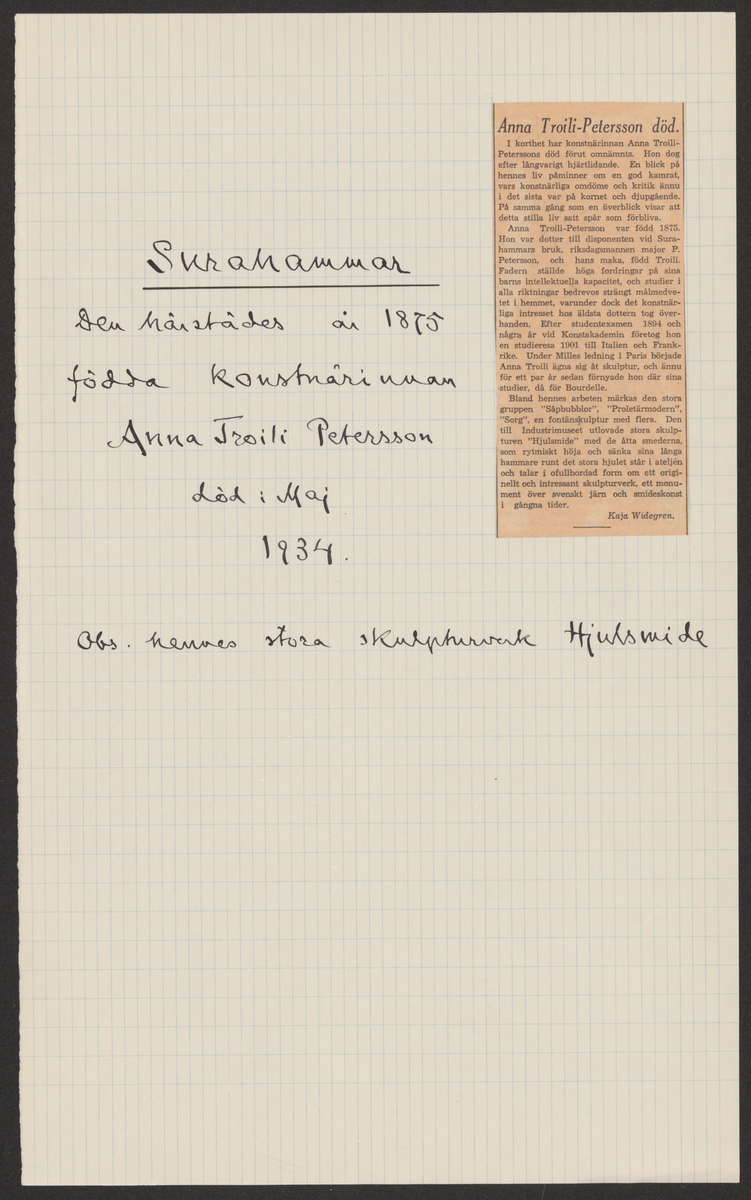 Surahammar
Den härstädes år 1875
födda konstnärinnan
Anna Troili Petersson
död i Maj
1934.
Obs. hennes stora skulpturverk Hjulsmide
Anna Troili-Petersson död.
I korthet har konstnärinnan Anna Troili-
Peterssons död förut omnämnts. Hon dog
efter långvarigt hjärtlidande. En blick på
hennes liv påminner om en god kamrat,
vars konstnärliga omdöme och kritik ännu
i det sista var på kornet och djupgående.
På samma gång som en överblick visar att
detta stilla liv satt spår som förbliva.
Anna Troili-Petersson var född 1875.
Hon var dotter till disponenten vid Sura-
hammars bruk, riksdagsmannen major P.
Petersson, och hans maka, född Troili.
Fadern ställde höga fordringar på sina
barns intellektuella kapacitet, och studier i
alla riktningar bedrevos strängt målmedve-
tet i hemmet, varunder dock det konstnär-
liga intresset hos äldsta dottern tog över-
handen. Efter studentexamen 1894 och
några år vid Konstakademin företog hon
en studieresa 1901 till Italien och Frank-
rike. Under Milles ledning i Paris började
Anna Troili ägna sig åt skulptur, och ännu
för ett par år sedan förnyade hon där sina
studier, då för Bourdelle.
Bland hennes arbeten märkas den stora
gruppen "Såpbubblor", "Proletärmodern",
"Sorg", en fontänskulptur med flera. Den
till Industrimuseet utlovade stora skulp-
turen "Hjulsmide" med de åtta smederna,
som rytmiskt höja och sänka sina långa
hammare runt det stora hjulet står i ateljén
och talar i ofullbordad form om ett origi-
nellt och intressant skulpturverk, ett monu-
ment över svenskt järn och smideskonst
i gångna tider.
Kaja Widegren.